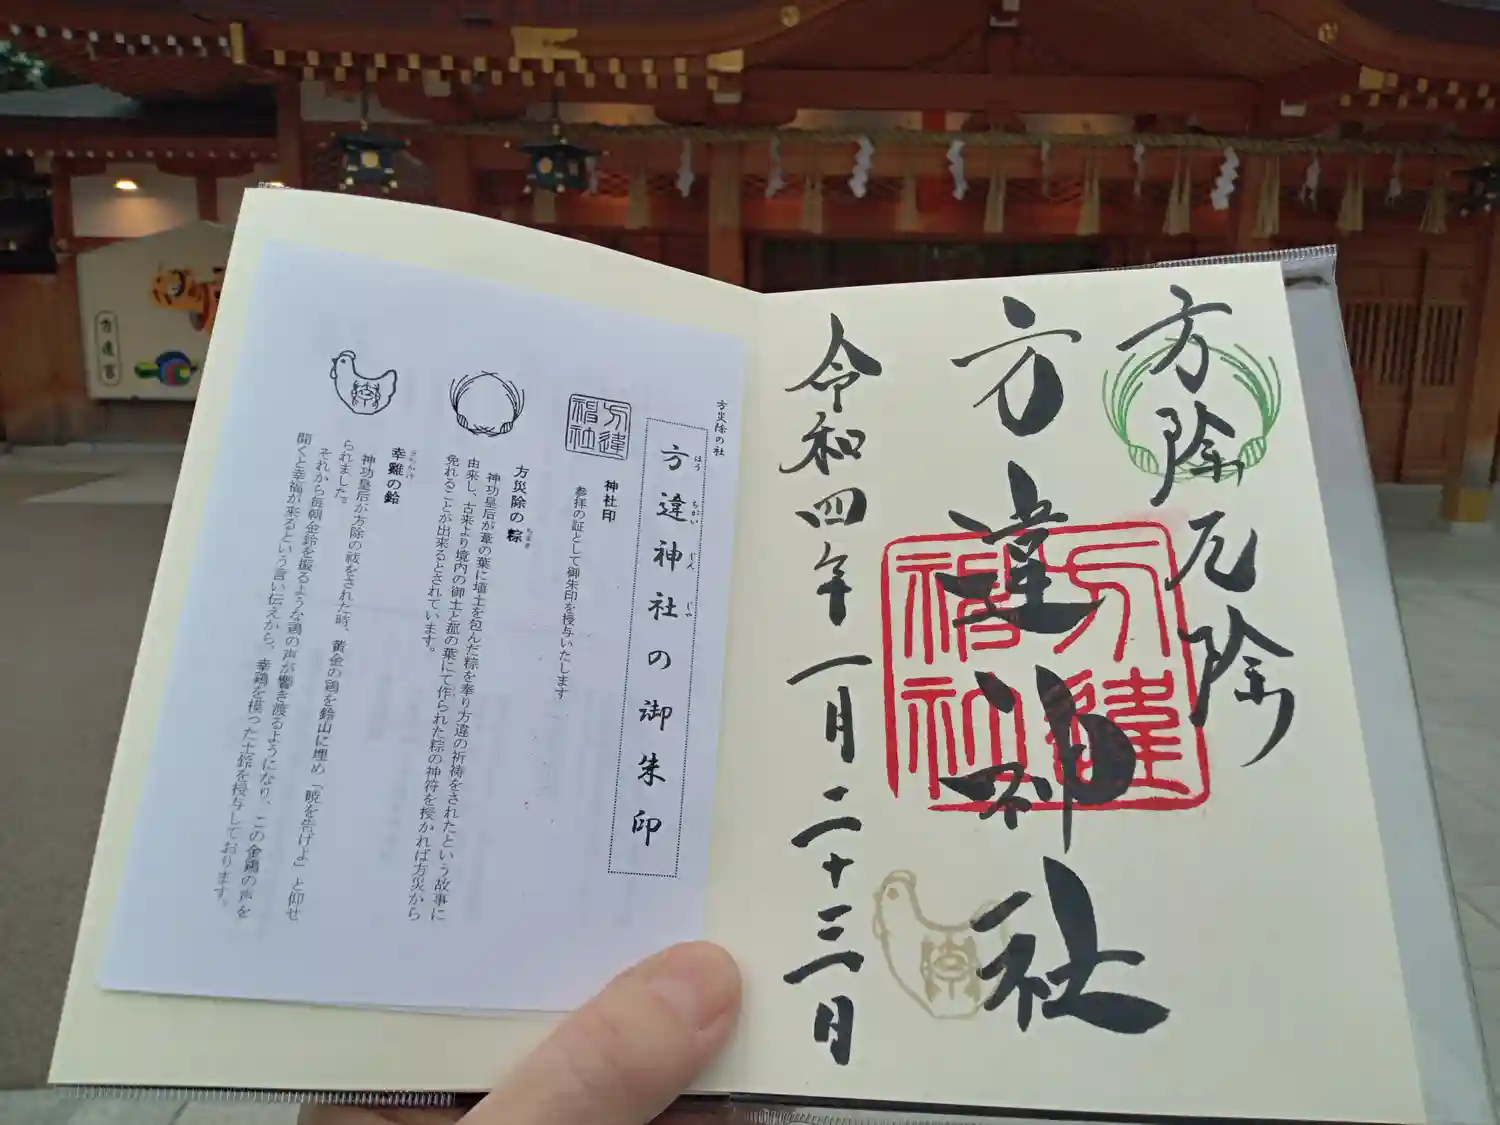 方除厄除
方違神社
令和四年一月二十三日
方違
神社
方災除の社
方違神社の御朱印
ほう ちがい じん じゃ
方違
神社
神社印
参拝の証として御朱印を授与いたします
方災除の粽
ちまき
神功皇后が葦の葉に埴土を包んだ粽を奉り方違の祈祷をされたという故事に
由来し、古来より境内の御土と菰の葉にて作られた粽の神符を授かれば方災から
免れることが出来るとされています。
幸鶏の鈴
さちかけ
神功皇后が方除の祓をされた時、黄金の鶏を鈴山に埋め「暁を告げよ」と仰せ
られました。
それから毎朝金鈴を振るような鶏の声が響き渡るようになり、この金鶏の声を
聞くと幸福が来るという言い伝えから、幸鶏を模った土鈴を授与しております。
方違宮